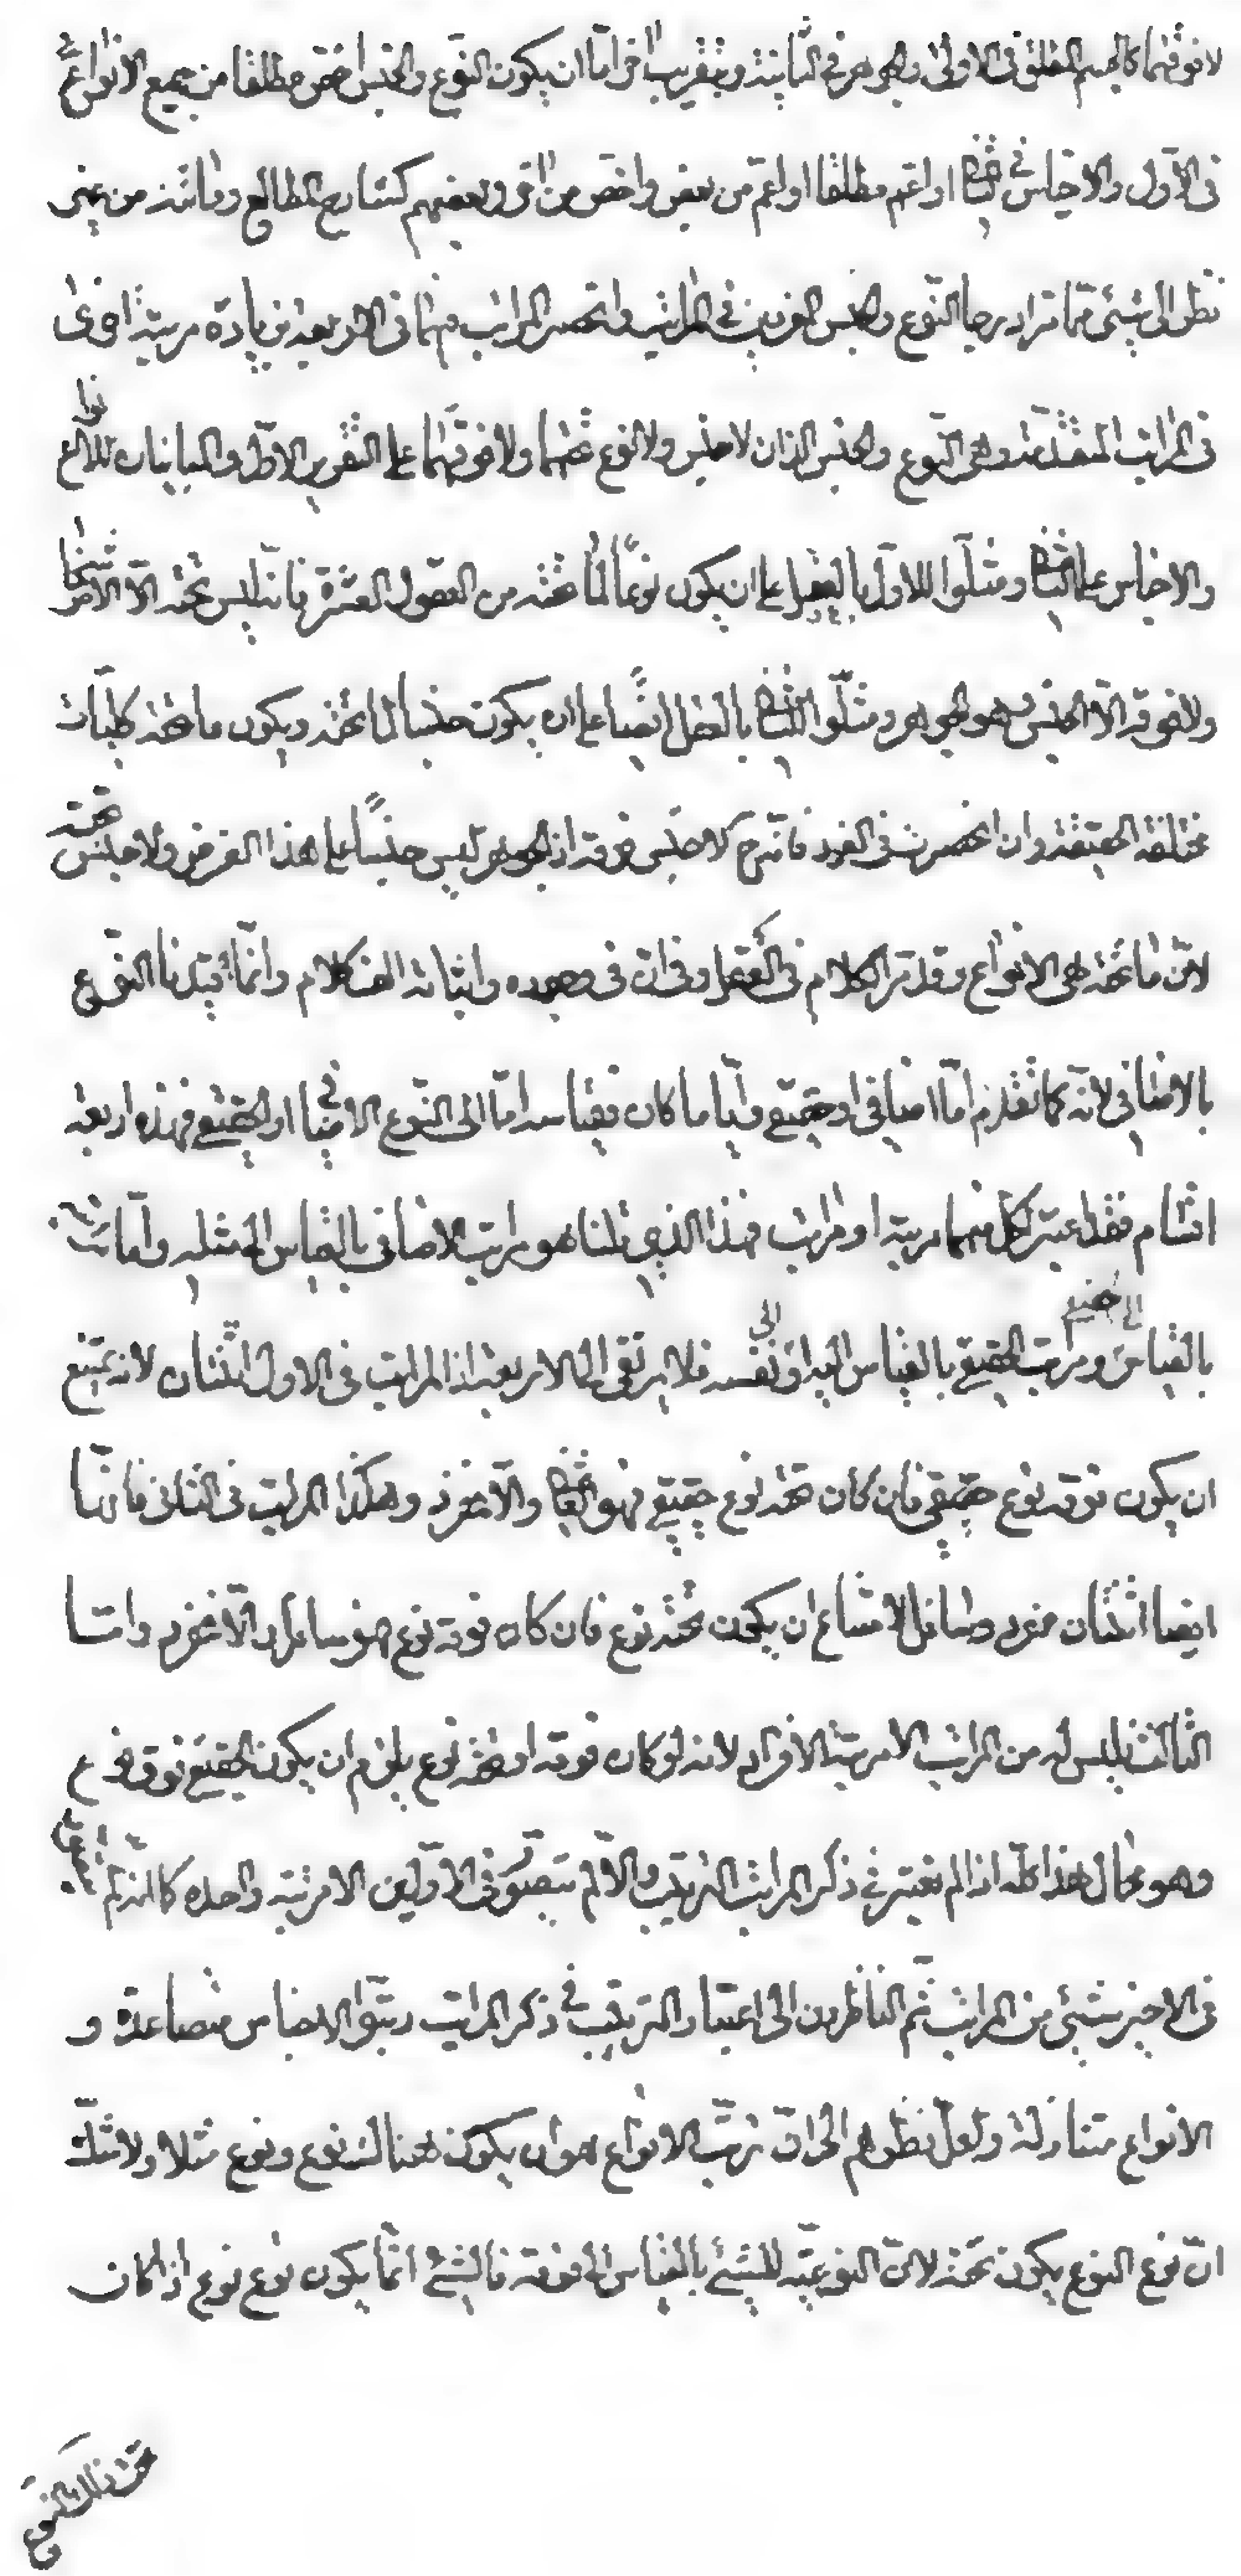 لا فوقهما كالجسم المطلق فى الاولى والجوهر في الثانية وبتقرير آخر امّا ان يكون النوع والجنس اخصّ مطلقا من جميع الانواع
فى الاول والاجناس في الثانى او اعم مطلقا او اعمّ من بعض واخصّ من آخر وبعضهم كشارح المطالع ومن
نظر الى شئ مّا زاد برجا النوع والجنس المفردين في المراتب وانحصر المراتب فيهما فى الاربعة بزيادة مرتبة اخرى
فى المراتب المتقدمة وهى النوع والجنس الذان لا جنس ولا نوع تحتهما ولا فوقهما على التقرير الاول والمباينان للانواع
والاجناس على الثانى ومثّلوا للاول بالعقل على ان يكون نوعًا لما تحته من العقول العشرة فانه ليس تحته الّا الاشخاص
ولا فوقه الّا الجنس وهو الجوهر ومثّلوا الثانى بالعقل ايضًا على ان يكون جنسا لما تحته ويكون ما تحته كليّات
مختلفة الحقيقة وان انحصرت فى الفرد فانه ح لا جنس فوقه اذ الجوهر ليس جنسًا على هذا الفرض ولا جنس تحته
لانّ ما تحته هى الانواع وقد مرّ الكلام فى العقل وفى انّ فى وجوده واثباته الف كلام وانّما قيّدنا النوع
بالاضافى لانّه كما تقدّم امّا اضافى او حقيقى وايّا ما كان فقياسه امّا الى النوع الاضافى او الحقيقى فهذه اربعة
اقسام فقد اعتبر لكلّ منهما مرتبة او مراتب فهذا الذى قلنا هو مراتب الاضافى بالقياس الى مثله وامّا مراتبه
بالقياس الى الحقيقى ومراتب الحقيقى بالقياس اليه او الى نفسه فلا يرتقى الى الاربعة اذ المراتب فى الاول اثنتان لانه يمتنع
ان يكون فوقه نوع حقيقى فان كان تحته نوع حقيقى فهو العالى والّا فمفرد وهكذا المراتب فى الثانى فانها
ايضا اثنتان مفرد وسافل لامتناع ان يكون تحته نوع فان كان فوقه نوع فهو سافل والّا فمفرد وامّا
الثالث فليس له من المراتب الا مرتبة الافراد لانه لو كان فوقه او تحته نوع يلزم ان يكون الحقيقى فوق نوع
وهو محال هذا كلّه اذا لم نعتبر في ذكر المراتب الترتيب والّا لم يتصوّر فى الاولين الا مرتبة واحدة كما انه لم
فى الاخير شئ من المراتب ثم الناظرون الى اعتبار الترتيب في ذكر المراتب رتّبوا الاجناس متصاعدة و
الانواع متنازلة ولعل نظرهم الى انّ ترتّب الانواع هو ان يكون هناك نوع ونوع مثلا ولا شكّ
انّ نوع النوع يكون تحته لانّ النوعيّة للشئ بالقياس الى فوقه فالشئ انّما يكون نوع نوع اذا كان
تحت ذلك النوع